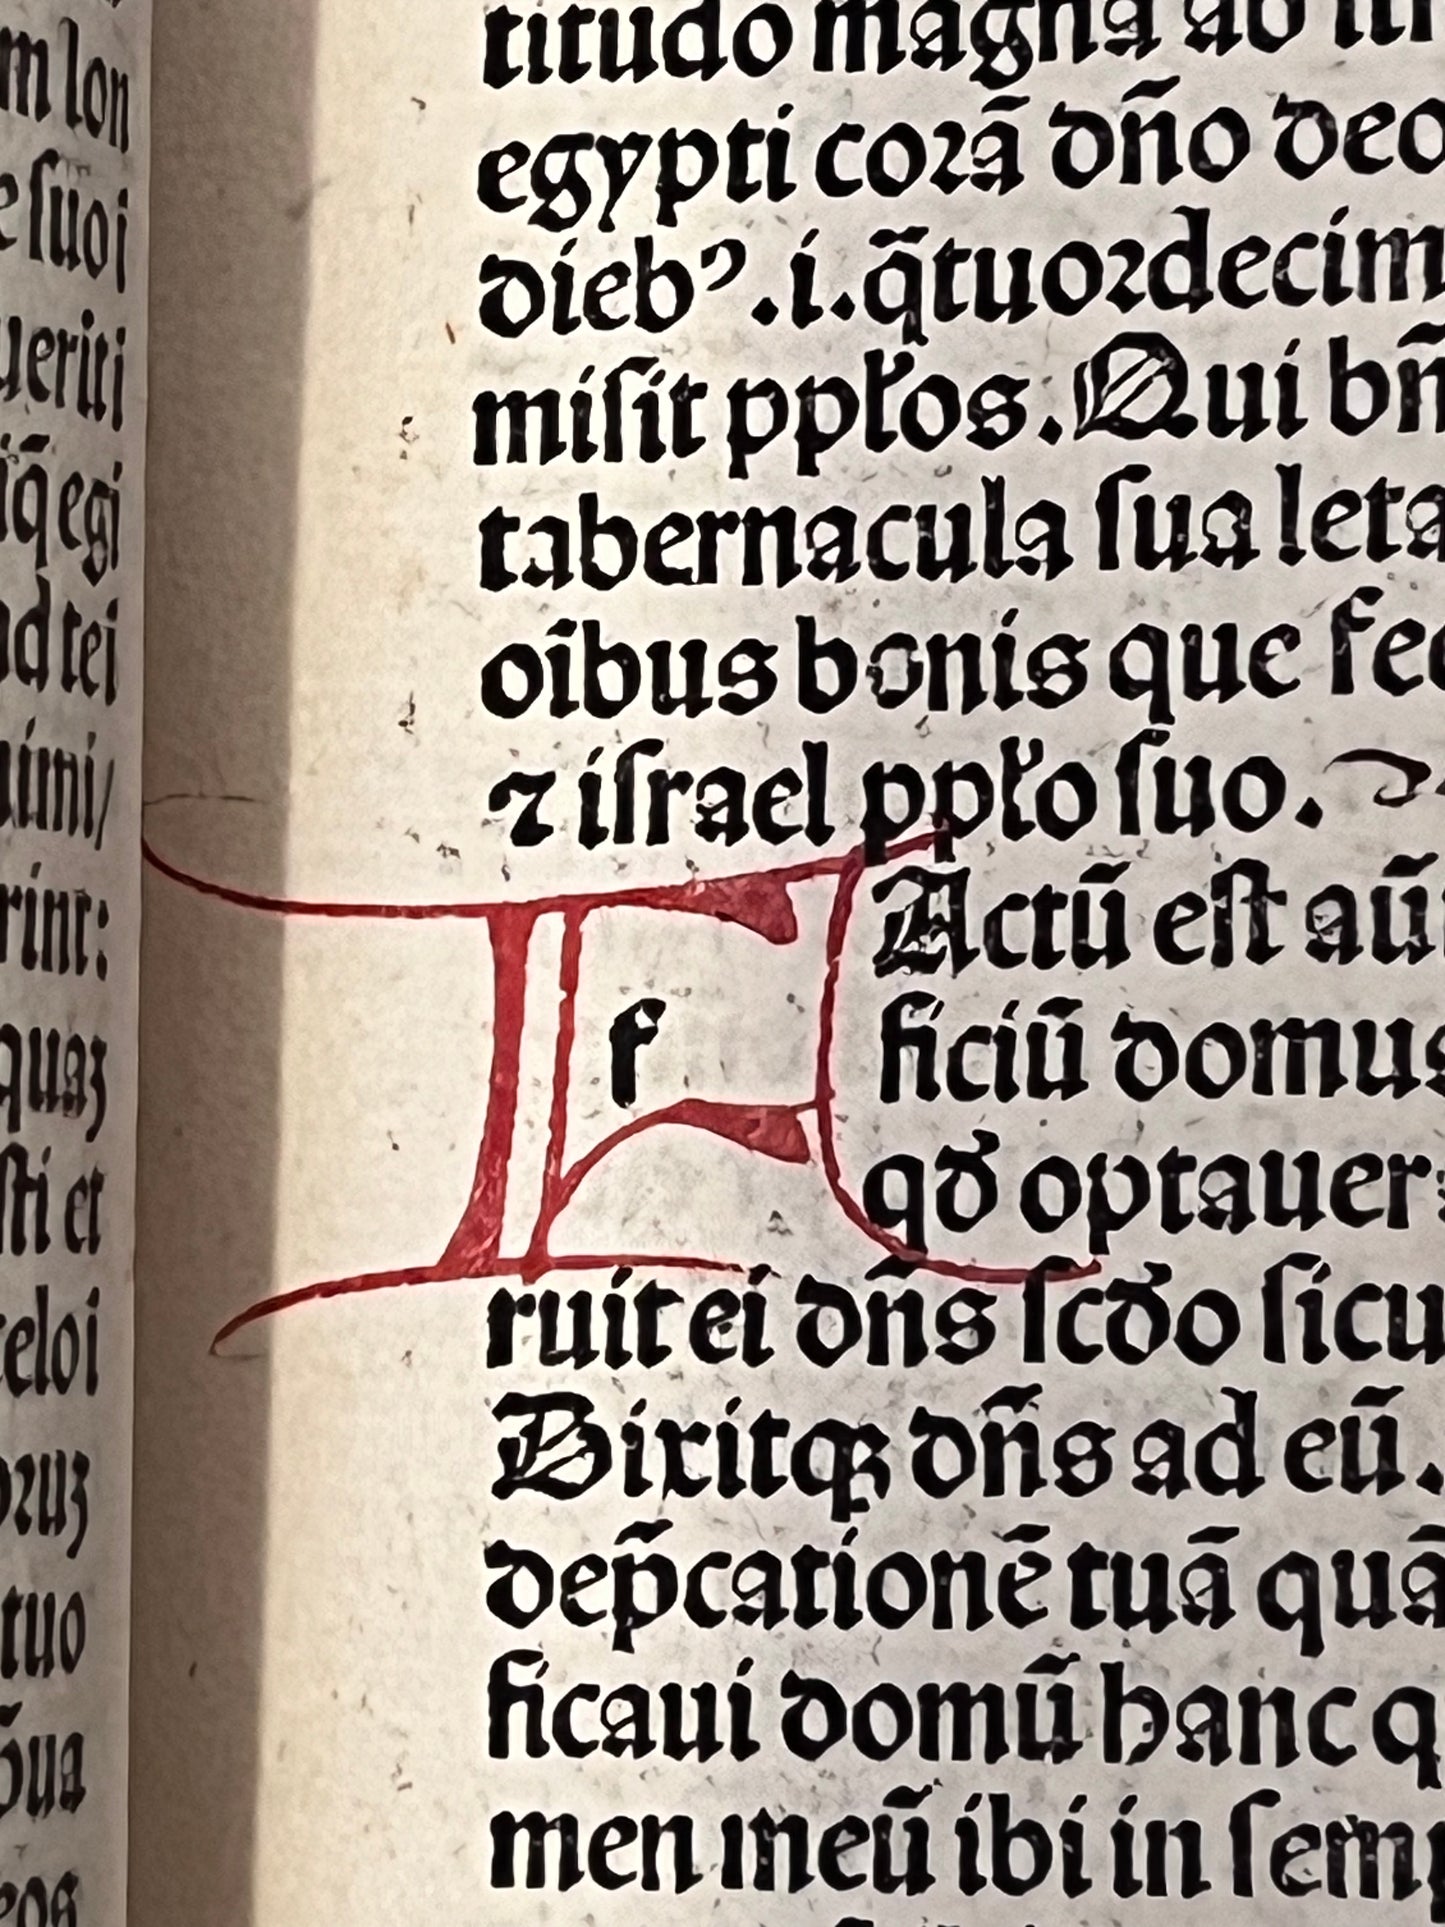 m lon
e ſuoi
ueriti
iq̄ egi
ad tei
uimi/
rint:
quaꝫ
ſti et
celoi
oꝛuꝫ
tuo
ñua
eos
titudo magna ab
egypti coꝛã dño deo
dieb⁹.i.q̃tuoꝛdecim
miſit ppłos. Qui bñ
tabernacula ſua leta
oībus bonis que fec
⁊ iſrael ppło ſuo.
F
f
Actū eſt aū
ficiū domus
qđ optauer
ruit ei dñs ſcđo ſicu
Dixitqꝫ dñs ad eū.
dep̃cationē tuã quã
ficaui domū hanc q
men meū ibi in ſemp